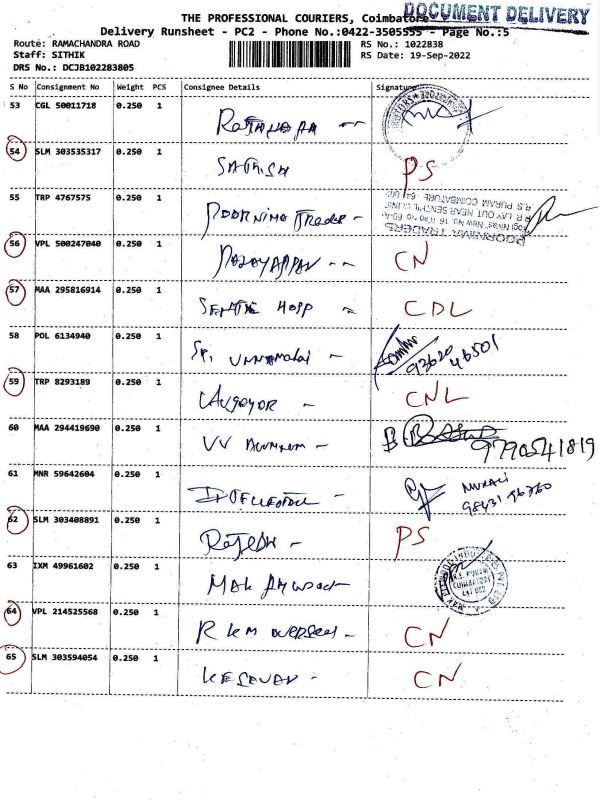 THE PROFESSIONAL COURIERS, Coimbatore
DOCUMENT DELIVERY
Delivery Runsheet - PC2 - Phone No.:0422-3505555 - Page No.:5
Route: RAMACHANDRA ROAD RS No.: 1022838
Staff: SITHIK RS Date: 19-Sep-2022
DRS No.: DCJB102283805
S No Consignment No Weight PCS Consignee Details Signature
53 CGL 50011718 0.250 1
54 SLM 303535317 0.250 1 SATHISH PS
55 TRP 4767575 0.250 1 POORNIMA TRADER
POORNIMA TRADERS
R.S. PURAM COIMBATORE
56 VPL 500247040 0.250 1 CN
57 MAA 295816914 0.250 1 HOSP CDL
58 POL 6134940 0.250 1 Sri Unnamalai
93620
46501
59 TRP 8293189 0.250 1 CNL
60 MAA 294419690 0.250 1 VV
9790541819
61 MNR 59642604 0.250 1
MURALI
62 SLM 303408891 0.250 1 Rajesh PS
63 IXM 49961602 0.250 1
R.S. PURAM
COIMBATORE
64 VPL 214525568 0.250 1 R K M overseas CN
65 SLM 303594054 0.250 1 KESAVAN CN